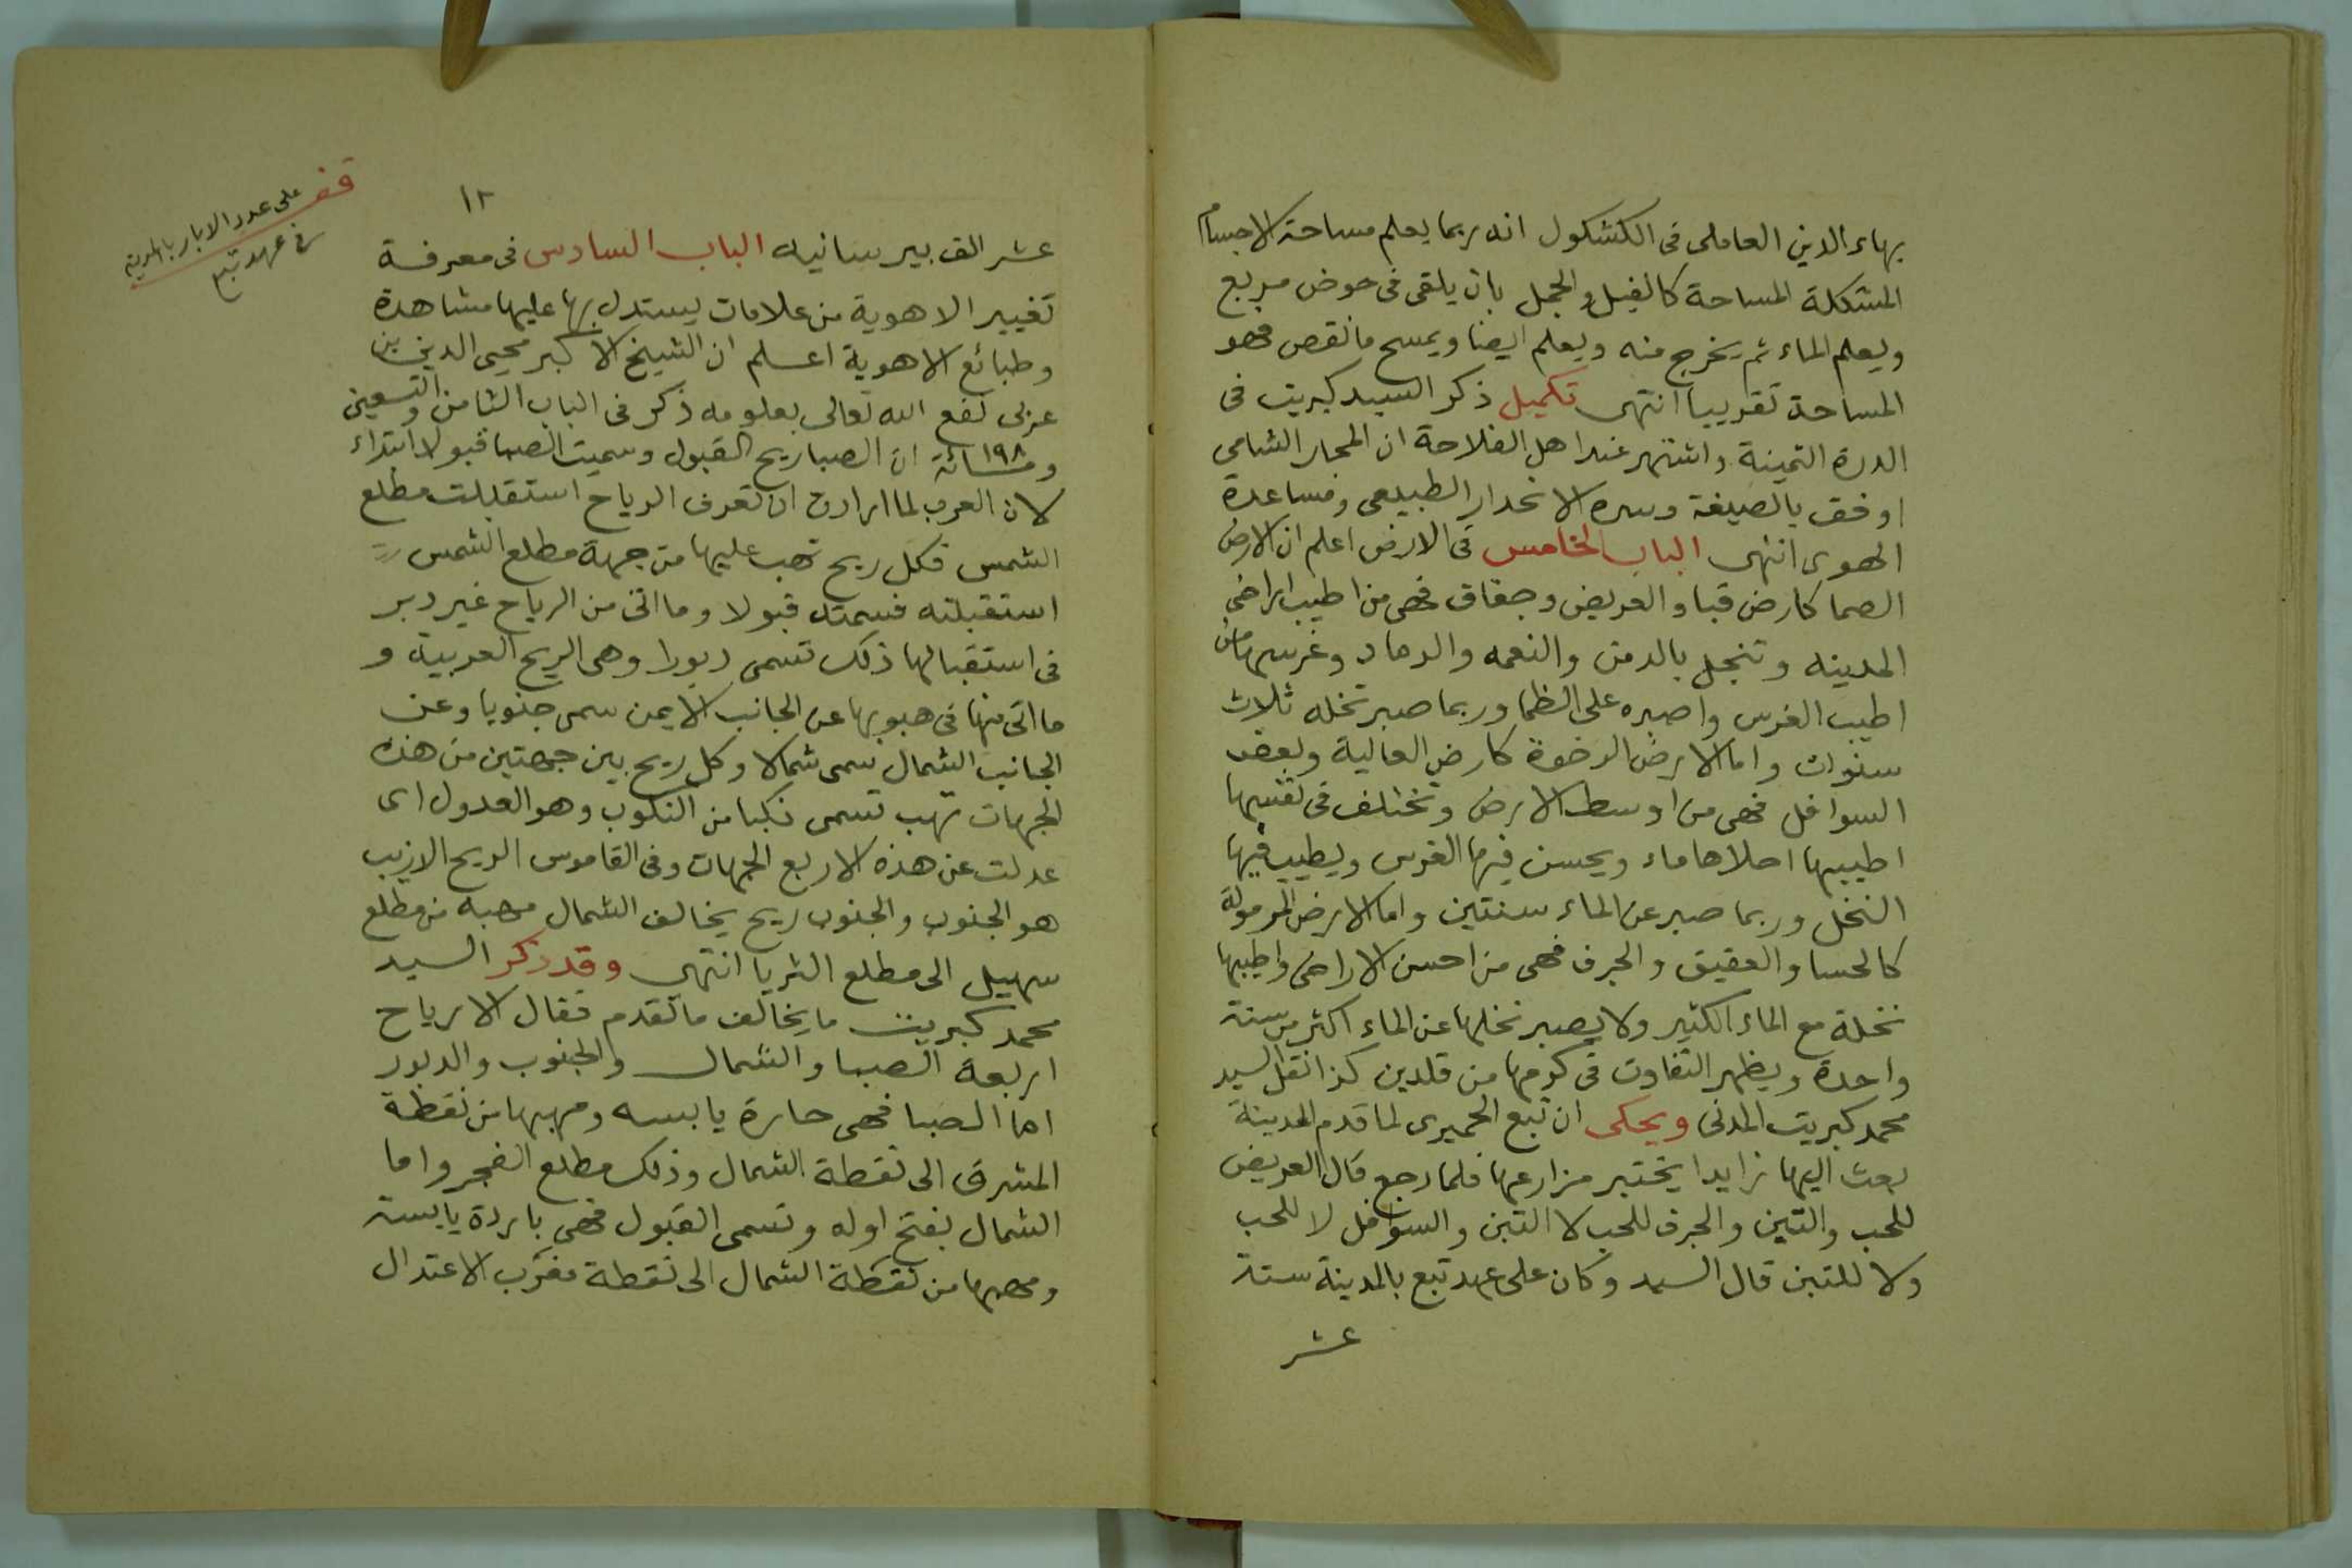 بهاء الدين العاملى فى الكشكول انه ربما يعلم مساحة الاجسام
المشكلة المساحة كالفيل والجمل بان يلقى فى حوض مربع
ويعلم الماء ثم يخرج منه ويعلم ايضا ويمسح ما نقص فهو
المساحة تقريبا انتهى تكميل ذكر السيد كبريت فى
الدرة الثمينة واشتهر عند اهل الفلاحة ان المجار الشامى
اوفق بالصيفة وسره الانحدار الطبيعى ومساعدة
الهوى انتهى الباب الخامس فى الارض اعلم ان الارض
الصما كارض قبا والعريض وجفاف فهى من اطيب اراضى
المدينه وتنجل بالدمن والنعمه والرماد وغرسها من
اطيب الغرس واصبره على الظما وربما صبر نخله ثلاث
سنوات واما الارض الرخوة كارض العالية وبعض
السوافل فهى من اوسط الارض وتختلف فى نفسها
اطيبها احلاها ماء ويحسن فيها الغرس ويطيب فيها
النخل وربما صبر عن الماء سنتين واما الارض المرمولة
كالحسا والعقيق والجرف فهى من احسن الاراضى واطيبها
نخلة مع الماء الكثير ولا يصبر نخلها عن الماء اكثر من سنة
واحدة ويظهر التفاوت فى كرمها من قلدين كذا نقل السيد
محمد كبريت المدنى ويحكى ان تبع الحميرى لما قدم المدينة
بعث اليها زايدا يختبر مزارعها فلما رجع قال العريض
للحب والتين والجرف للحب لا التبن والسوافل لا للحب
ولا للتبن قال السيد وكان على عهد تبع بالمدينة ستة
عشر
١٢
قف على عدد الابار بالمدينة
فى عهد تبع
عشر الف بير سانيه الباب السادس فى معرفة
تغيير الاهوية من علامات يستدل بها عليها مشاهدة
وطبائع الاهوية اعلم ان الشيخ الاكبر محيى الدين بن
عربى نفع الله تعالى بعلومه ذكر فى الباب الثامن والتسعين
ومائة ١٩٨ ان الصبا ريح القبول وسميت الصبا قبولا ابتداء
لان العرب لما ارادت ان تعرف الرياح استقبلت مطلع
الشمس فكل ريح تهب عليها من جهة مطلع الشمس
استقبلته فسمته قبولا وما اتى من الرياح عن دبر
فى استقبالها ذلك تسمى دبورا وهى الريح الغربية و
ما اتى منها فى هبوبها عن الجانب الايمن سمى جنوبا وعن
الجانب الشمال سمى شمالا وكل ريح بين جهتين من هذه
الجهات تهب تسمى نكبا من النكوب وهو العدول اى
عدلت عن هذه الاربع الجهات وفى القاموس الريح الازيب
هو الجنوب والجنوب ريح يخالف الشمال مهبه من مطلع
سهيل الى مطلع الثريا انتهى وقد ذكر السيد
محمد كبريت ما يخالف ما تقدم فقال الارياح
اربعة الصبا والشمال والجنوب والدبور
اما الصبا فهى حارة يابسه ومهبها من نقطة
المشرق الى نقطة الشمال وذلك مطلع الفجر واما
الشمال بفتح اوله وتسمى القبول فهى باردة يابسة
ومهبها من نقطة الشمال الى نقطة مغرب الاعتدال